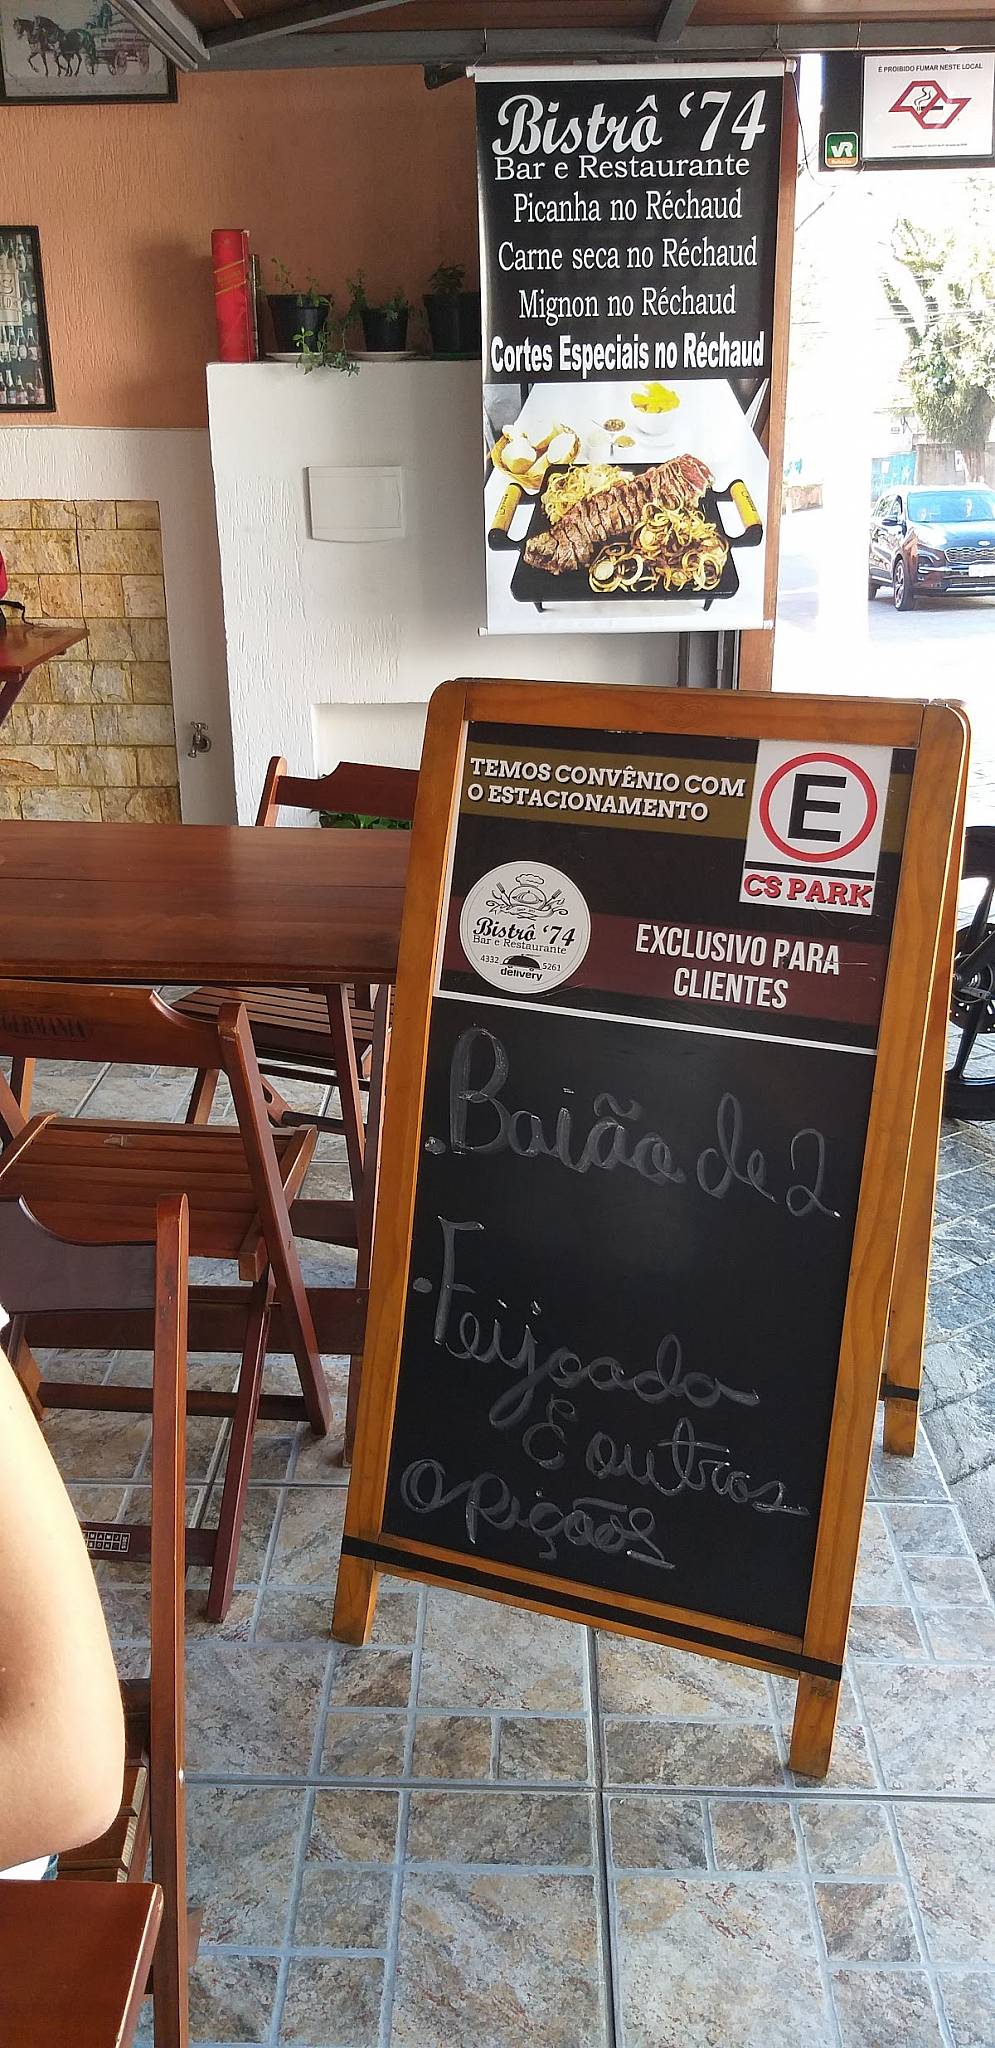 Bistrô '74
Bar e Restaurante
Picanha no Réchaud
Carne seca no Réchaud
Mignon no Réchaud
Cortes Especiais no Réchaud
É PROIBIDO FUMAR NESTE LOCAL
VR
TEMOS CONVÊNIO COM
O ESTACIONAMENTO
E
CS PARK
Bistrô '74
Bar e Restaurante
4332 5261
delivery
EXCLUSIVO PARA
CLIENTES
.Baião de 2
.Feijoada
E outros
opições
GERMANIA